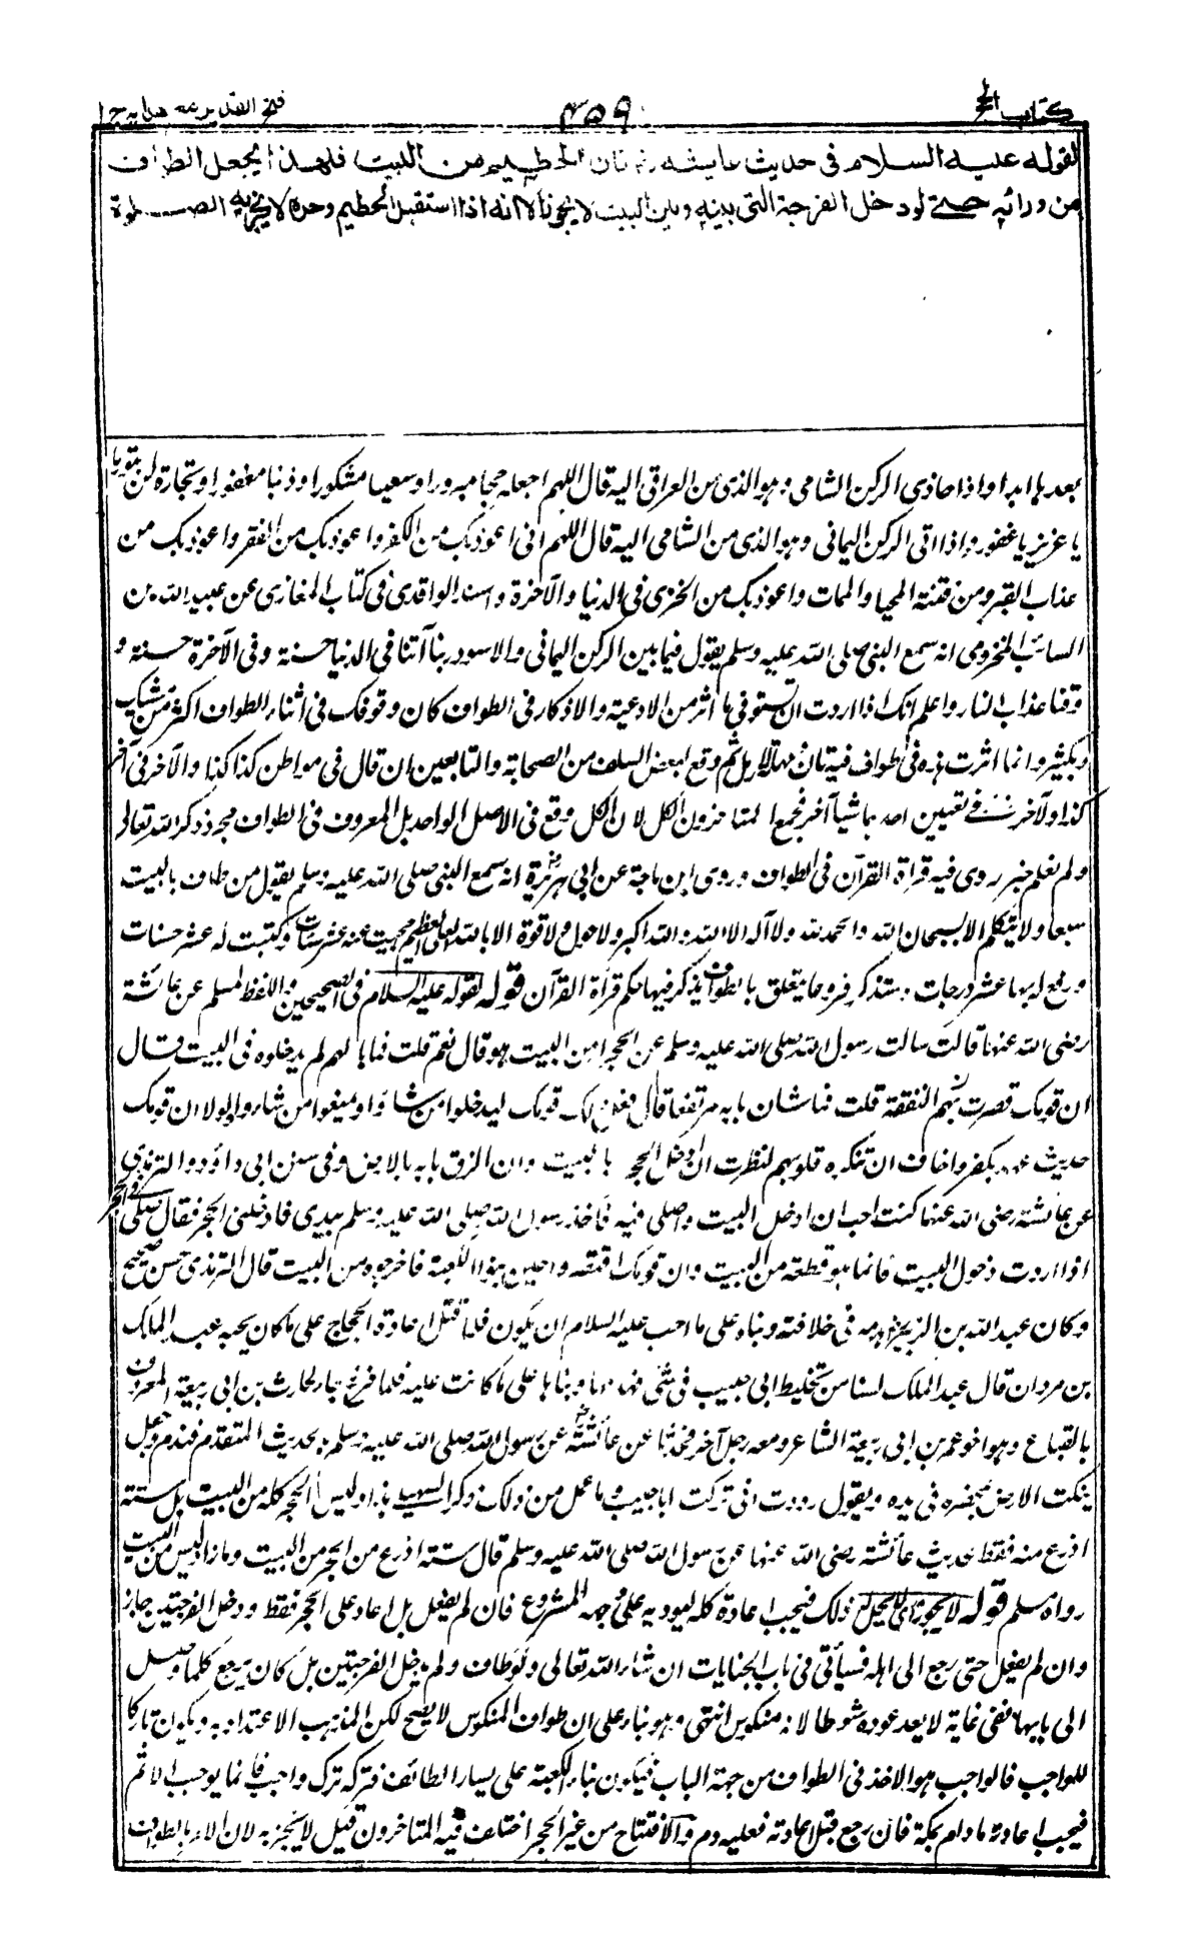 كتاب الحج
٤٥٩
فتح القدير مع هدايه ج ١
لقوله عليه السلام فى حديث عايشه رض فان الحطيم من البيت فلهذا يجعل الطواف
من ورائه حتى لو دخل الفرجة التى بينه وبين البيت لا يجوز الا انه اذا استقبل الحطيم وحده لا يجزيه الصلوة
بعدها ابدا واذا حاذى الركن الشامى وهو الذى من العراقى اليه قال اللهم اجعله حجا مبرورا وسعيا مشكورا وذنبا مغفورا وتجارة لن تبور يا
يا عزيز يا غفور واذا اتى الركن اليمانى وهو الذى من الشامى اليه قال اللهم انى اعوذبك من الكفر واعوذبك من الفقر واعوذبك من
عذاب القبر ومن فتنة المحيا والممات واعوذبك من الخزى فى الدنيا والآخرة واسند الواقدى فى كتاب المغازى عن عبد الله بن
السائب المخزومى انه سمع النبى صلى الله عليه وسلم يقول فيما بين الركن اليمانى والاسود ربنا آتنا فى الدنيا حسنة وفى الآخرة حسنة و
وقنا عذاب النار واعلم انك اذا اردت ان تستوفى ما اثر من الادعية والاذكار فى الطواف كان وقوفك فى اثناء الطواف اكثر من مشيك
بكثير وانما اثرت هذه فى طواف فيه تأن ومهلة لا رمل ثم وقع لبعض السلف من الصحابة والتابعين ان قال فى مواطن كذا كذا والآخر فى آخر
كذا ولآخر فى تعيين احدهما شيأ آخر فجمع المتاخرون الكل لا ان الكل وقع فى الاصل الواحد بل المعروف فى الطواف مجرد ذكر الله تعالى
ولم نعلم خبر روى فيه قراءة القرآن فى الطواف وروى ابن ماجة عن ابى هريرة انه سمع النبى صلى الله عليه وسلم يقول من طاف بالبيت
سبعا ولا يتكلم الا بسبحان الله والحمد لله ولا اله الا الله والله اكبر ولا حول ولا قوة الا بالله العلى العظيم محيت عنه عشر سيئات وكتبت له عشر حسنات
ورفع له بها عشر درجات وسنذكر فروعا يتعلق بالطواف نذكر فيها حكم قراءة القرآن قوله لقوله عليه السلام فى الصحيحين واللفظ لمسلم عن عائشة
رضى الله عنها قالت سالت رسول الله صلى الله عليه وسلم عن الحجر امن البيت هو قال نعم قلت فما بالهم لم يدخلوه فى البيت قال
ان قومك قصرت بهم النفقة قلت فما شان بابه مرتفعا قال فعل ذلك قومك ليدخلوا من شاؤا ويمنعوا من شاؤا ولولا ان قومك
حديث عهد بكفر واخاف ان تنكره قلوبهم لنظرت ان ادخل الحجر بالبيت وان الزق بابه بالارض وفى سنن ابى داؤد والترمذى
عن عائشة رضى الله عنها كنت احب ان ادخل البيت واصلى فيه فاخذ رسول الله صلى الله عليه وسلم بيدى فادخلنى الحجر فقال صلى فى الحجر
اذا اردت دخول البيت فانما هو قطعة من البيت وان قومك اقتصروا حين بنوا الكعبة فاخرجوه من البيت قال الترمذى حسن صحيح
وكان عبد الله بن الزبير هدمه فى خلافته وبناه على ما احب عليه السلام ان يكون فلما قتل اعادة الحجاج على ما كان يحبه عبد الملك
بن مروان قال عبد الملك لسنا من تخليط ابى خبيب فى شئ فهدمها وبناها على ما كانت عليه فلما فرغ جاء الحارث بن ابى ربيعة المعروف
بالقباع وهو اخو عمر بن ابى ربيعة الشاعر ومعه رجل آخر فحدثا عن عائشة عن رسول الله صلى الله عليه وسلم بحديث المتقدم فندم وجعل
ينكت الارض بمخصرة فى يده ويقول وددت انى تركت ابا خبيب وما عمل من ذلك ذكر السهيلى هذا وليس الحجر كله من البيت بل ستة
اذرع منه فقط لحديث عائشة رضى الله عنها عن رسول الله صلى الله عليه وسلم قال ستة اذرع من الحجر من البيت وما زاد ليس من البيت
رواه مسلم قوله لا يجوز اى لا يحل له ذلك فيجب اعادة كله ليؤديه على وجهه المشروع فان لم يفعل بل اعاد على الحجر فقط ودخل الفرجتين جاز
وان لم يفعل حتى رجع الى اهله فسيأتى فى باب الجنايات ان شاء الله تعالى ولو طاف ولم يدخل الفرجتين بل كان يرجع كلما وصل
الى بابها ففى غاية لا يعد عوده شوطا لانه منكوس انتهى وهو بناء على ان طواف المنكوس لا يصح لكن المذهب الاعتداد به ويكون تاركا
للواجب فالواجب هو الاخذ فى الطواف من جهة الباب فيكون بناء الكعبة على يسار الطائف فتركه ترك واجب فانما يوجب الاثم
فيجب اعادته ما دام بمكة فان رجع قبل اعادته فعليه دم والافتتاح من غير الحجر اختلف فيه المتاخرون قيل لا يجزيه لان الامر بالطواف